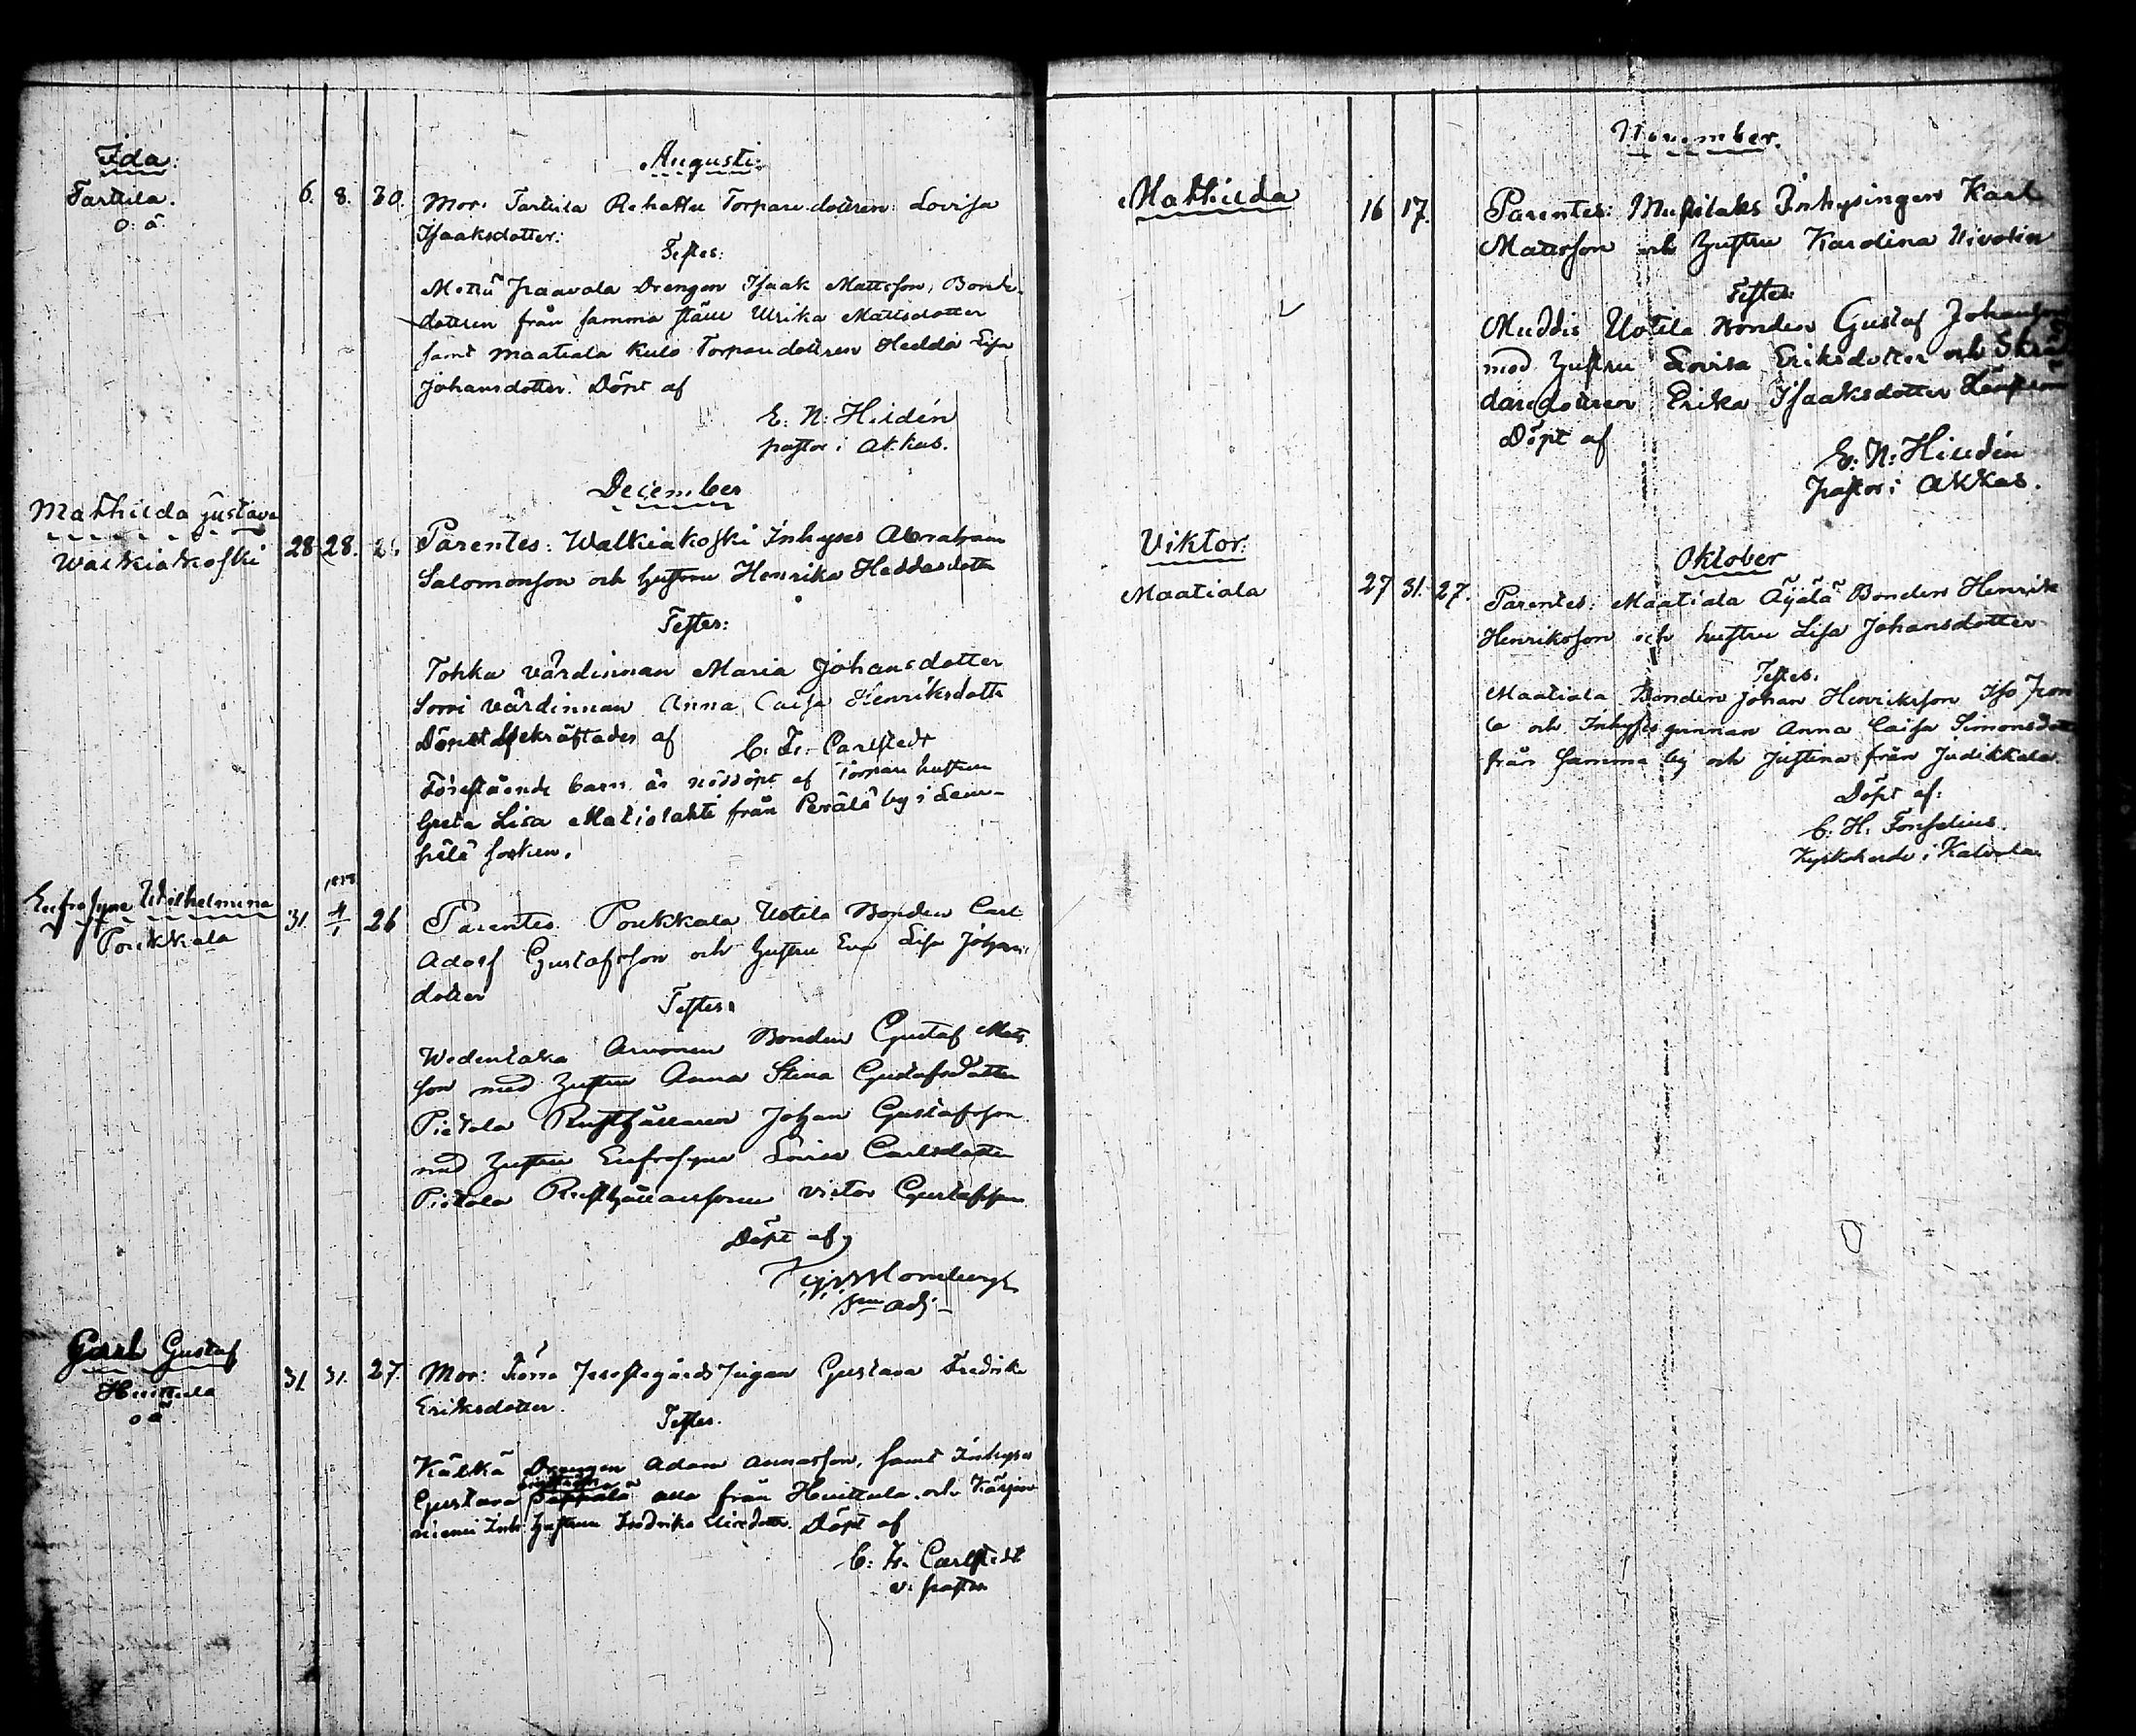 Augusti.
Ida.
Tarttila.
o: ä:
6. 8. 30. Mor: Tarttila Rekattu Torpare dottren: Lovisa
Isaaksdotter:
Testes:
Mettu Paavola Drengen Isaak Mattsson, Bonde-
dottren från samma ställe Ulrika Mattsdotter
samt Maatiala Kulo Torpare dottren Hedda Lisa
Johansdotter. Döpt af
E: N: Hildén
pastor i Akkas.
December
Mathilda Gustava
Walkiakoski
28. 28. 26 Parentes: Walkiakoski Inhyses Abraham
Salomonson och hustru Henrika Heddasdotter
Testes:
Tohka värdinnan Maria Johansdotter
Sorri värdinnan Anna Caisa Henriksdotter
Döpelse bekräftades af C. Fr. Carlstedt
Förestående barn är nöddöpt af Torpare hustrun
Greta Lisa Matislahti från Perälä by i Lem-
pälä socken.
Eufrosyne Wilhelmina
Poukkala
31. 4/1 26 Parentes. Poukkala Uotila Bonden Carl
Adolf Gustafsson och hustru Eva Lisa Johans
dotter
Testes:
Wedentaka Arvonen Bonden Gustaf Mats
son med hustru Anna Stina Gustafsdotter
Pietola Rusthållaren Johan Gustafsson
med hustru Eufrosyne Lovisa Carlsdotter
Pietola Rusthållaresonen Victor Gustafsson
Döpt af
Blomberg
adj
Carl Gustaf
Huittula
o ä.
31. 31. 27. Mor: Prestegårds Pigan Gustava Fredrika
Eriksdotter.
Testes.
Kälkä Drengen Adam Annasson, samt Inhyses
Gustava alla från Huittula och
niemi Inh: hustrun Fredrika Döpt af
C. Fr. Carlstedt
v. pastor
November.
Mathilda
16 17. Parentes: Inhysingen Karl
Mattsson och hustru Karolina
Testes:
Muddis Uotila Bonden Gustaf Johansson
med hustru Lovisa Eriksdotter och Skräd
daredottren Erika Isaaksdotter
Döpt af
E: N: Hildén
pastor i Akkas.
Oktober
Viktor:
Maatiala
27 31. 27. Parentes: Maatiala Äyälä Bonden Henrik
Henriksson och hustru Lisa Johansdotter
Testes.
Maatiala Bonden Johan Henriksson Iso
och Inhysesqvinnan Anna Caisa Simonsdotter
från samma by och Justina från Judikkala.
Döpt af:
C. H. Forselius.
Kyrkoherde i Kalvola.